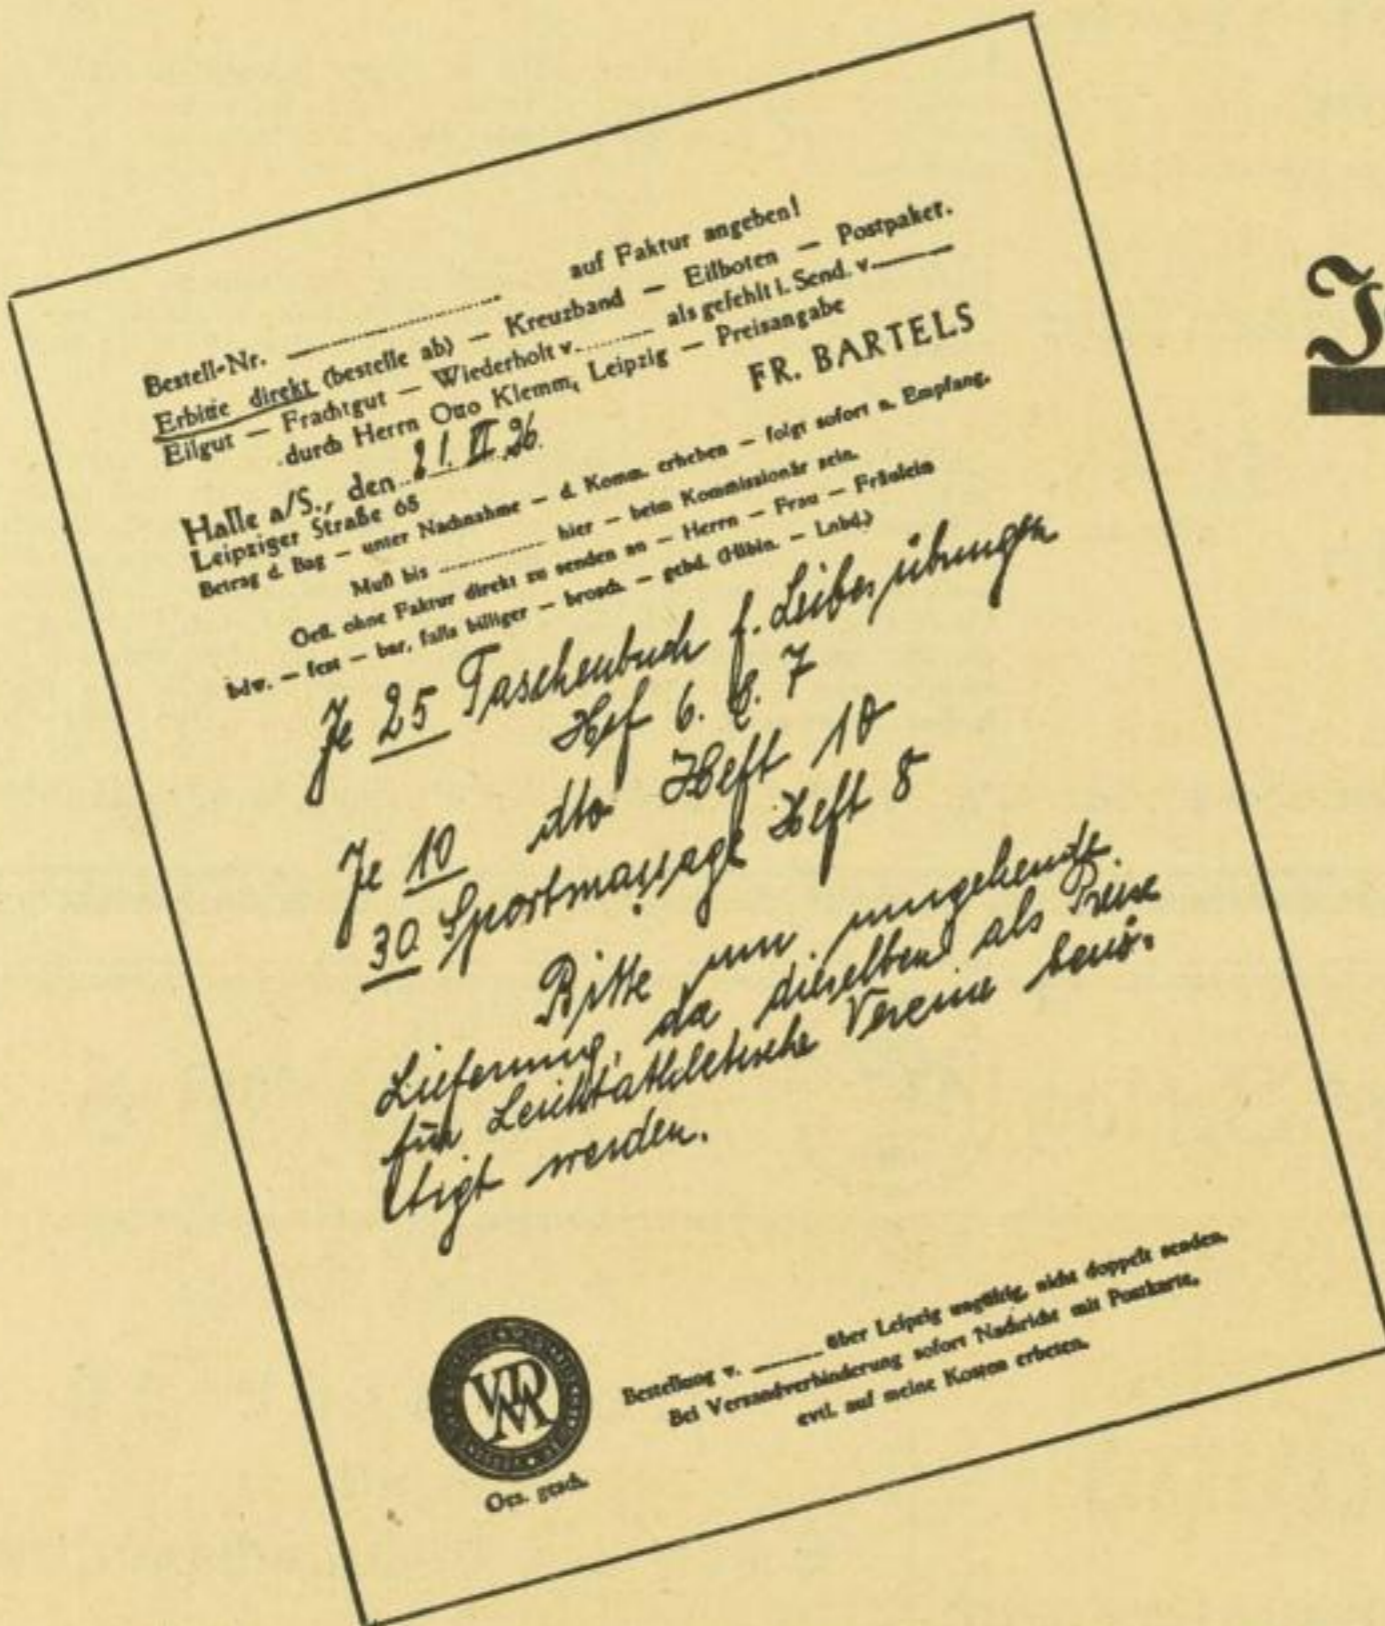 Bestell-Nr. auf Faktur angeben!
Erbitte direkt (bestelle ab) — Kreuzband — Eilboten — Postpaket.
Eilgut — Frachtgut — Wiederholt v. als gefehlt i. Send. v.
durch Herrn Otto Klemm, Leipzig — Preisangabe
FR. BARTELS
Halle a/S., den 21. VI. 26.
Leipziger Straße 65
Betrag d. Bag — unter Nachnahme — d. Komm. erheben — folgt sofort n. Empfang.
Muß bis hier — beim Kommissionär sein.
Gefl. ohne Faktur direkt zu senden an — Herrn — Frau — Fräulein
bdw. — fest — bar, falls billiger — brosch. — gebd. (Hlbln. — Lnbd.)
Je 25 Taschenbuch f. Leibesübungen
Hef 6. 7
Je 10 dto Heft 10
30 Sportmassage Heft 8
Bitte um umgehende
Lieferung, da dieselben als Preise
für Leichtathletische Vereine benö-
tigt werden.
Bestellung v. über Leipzig ungültig, nicht doppelt senden.
Bei Versandverhinderung sofort Nachricht mit Postkarte,
evtl. auf meine Kosten erbeten.
Ges. gesch.